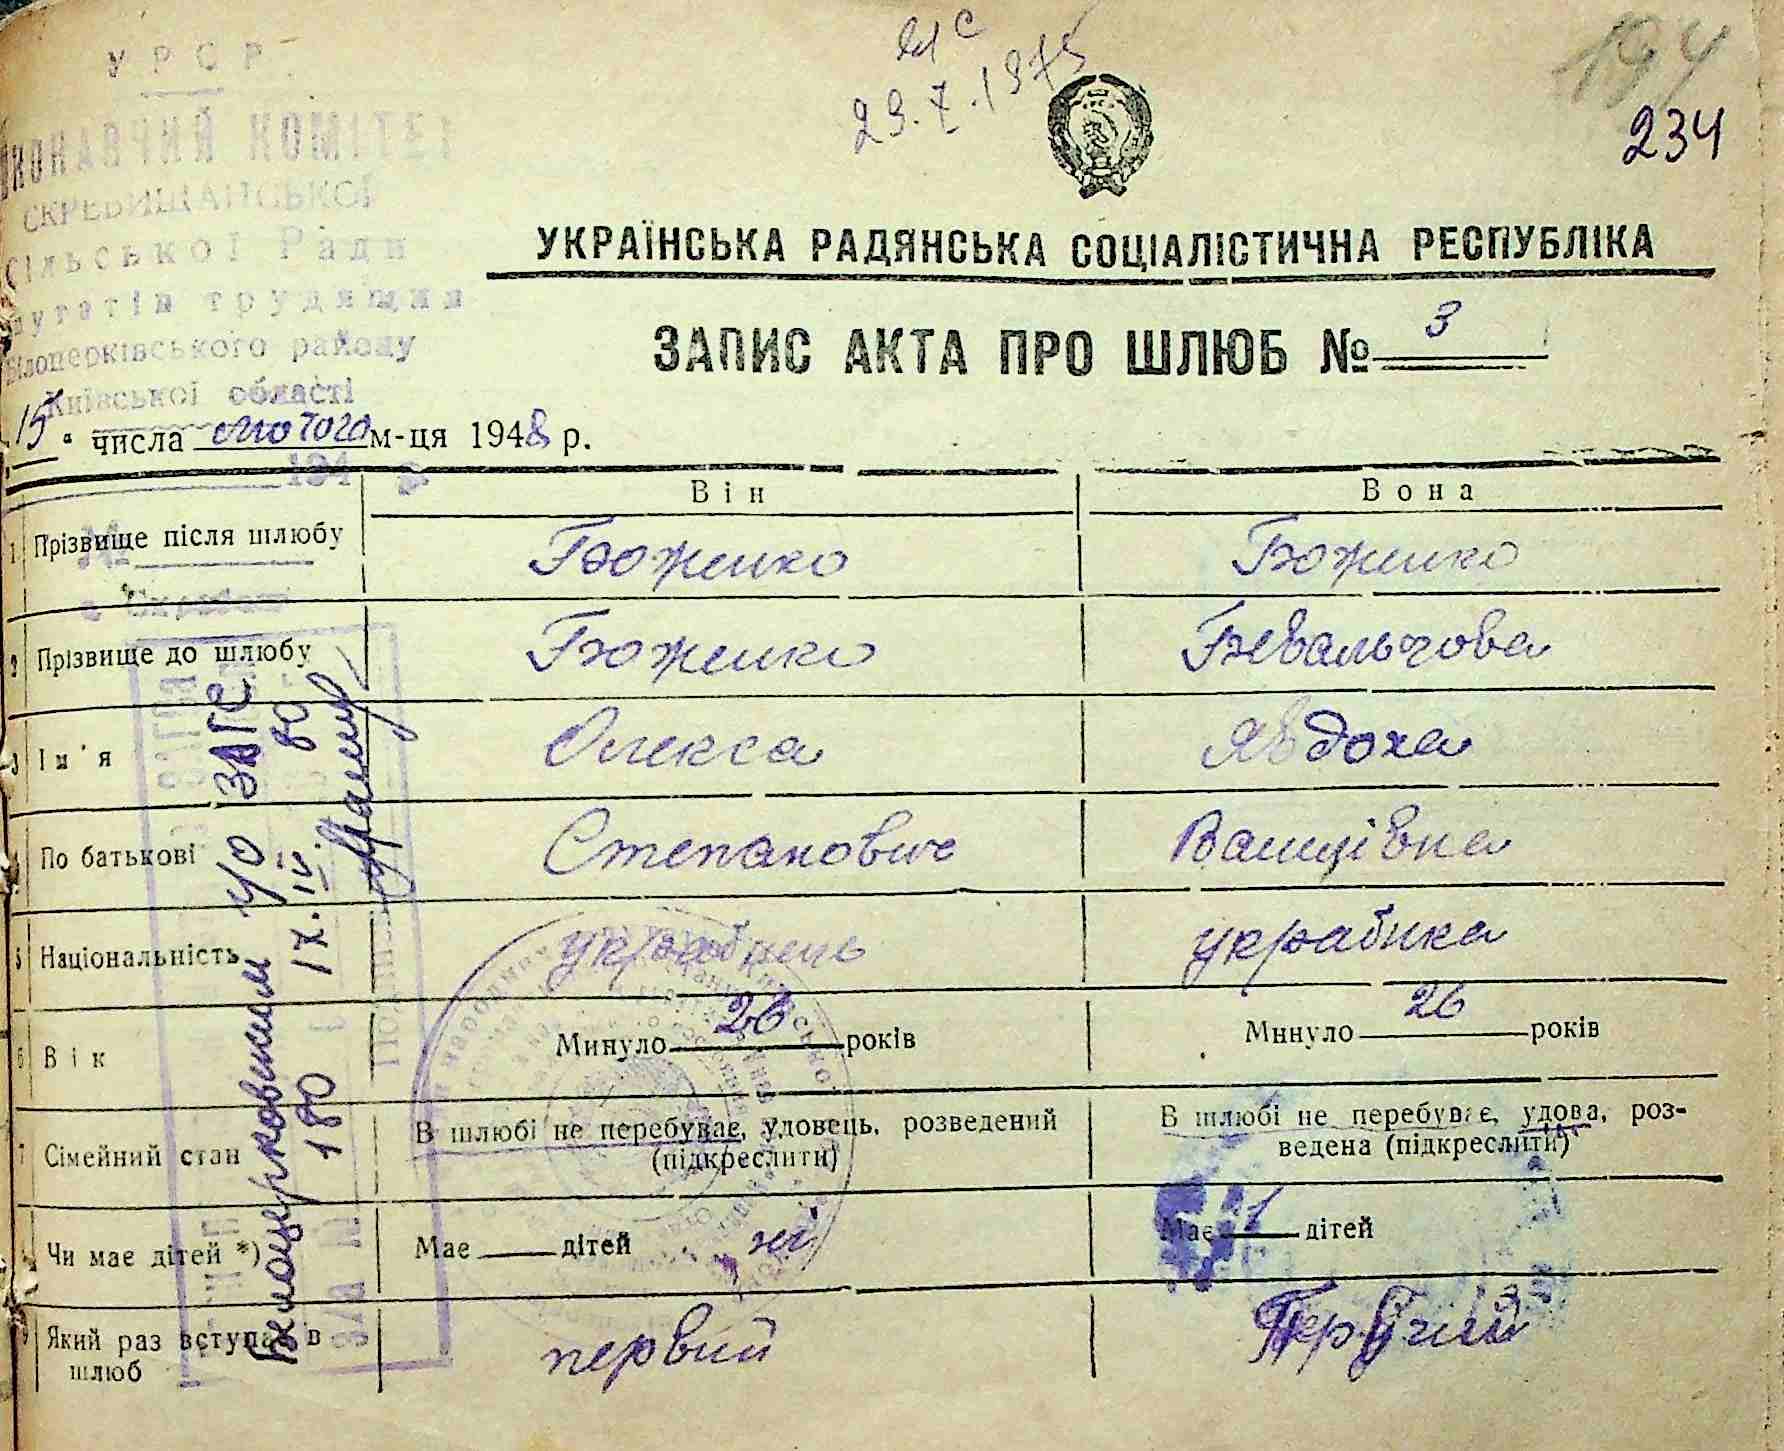 У Р С Р
ВИКОНАВЧИЙ КОМІТЕТ
СКРЕБИШАНСЬКОЇ
Сільської Ради
депутатів трудящих
Білоцерківського району
Київської області
194
23.X.1975
194
234
УКРАЇНСЬКА РАДЯНСЬКА СОЦІАЛІСТИЧНА РЕСПУБЛІКА
ЗАПИС АКТА ПРО ШЛЮБ № 3
15 " числа лютого м-ця 1948 р.
Він Вона
1 Прізвище після шлюбу Боженко Боженко
2 Прізвище до шлюбу Боженко
3 Ім'я Олекса Явдоха
4 По батькові Степанович
5 Національність українець українка
6 Вік Минуло 26 років Минуло 26 років
7 Сімейний стан В шлюбі не перебуває, удовець, розведений (підкреслити) В шлюбі не перебуває, удова, розведена (підкреслити)
Чи має дітей *) Має дітей ні Має 1 дітей
9 Який раз вступає в шлюб первий
Білоцерковским г/о ЗАГС
180 17.IV.80